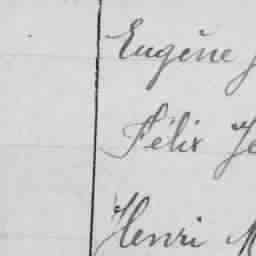 Eugène
Félix
Henri